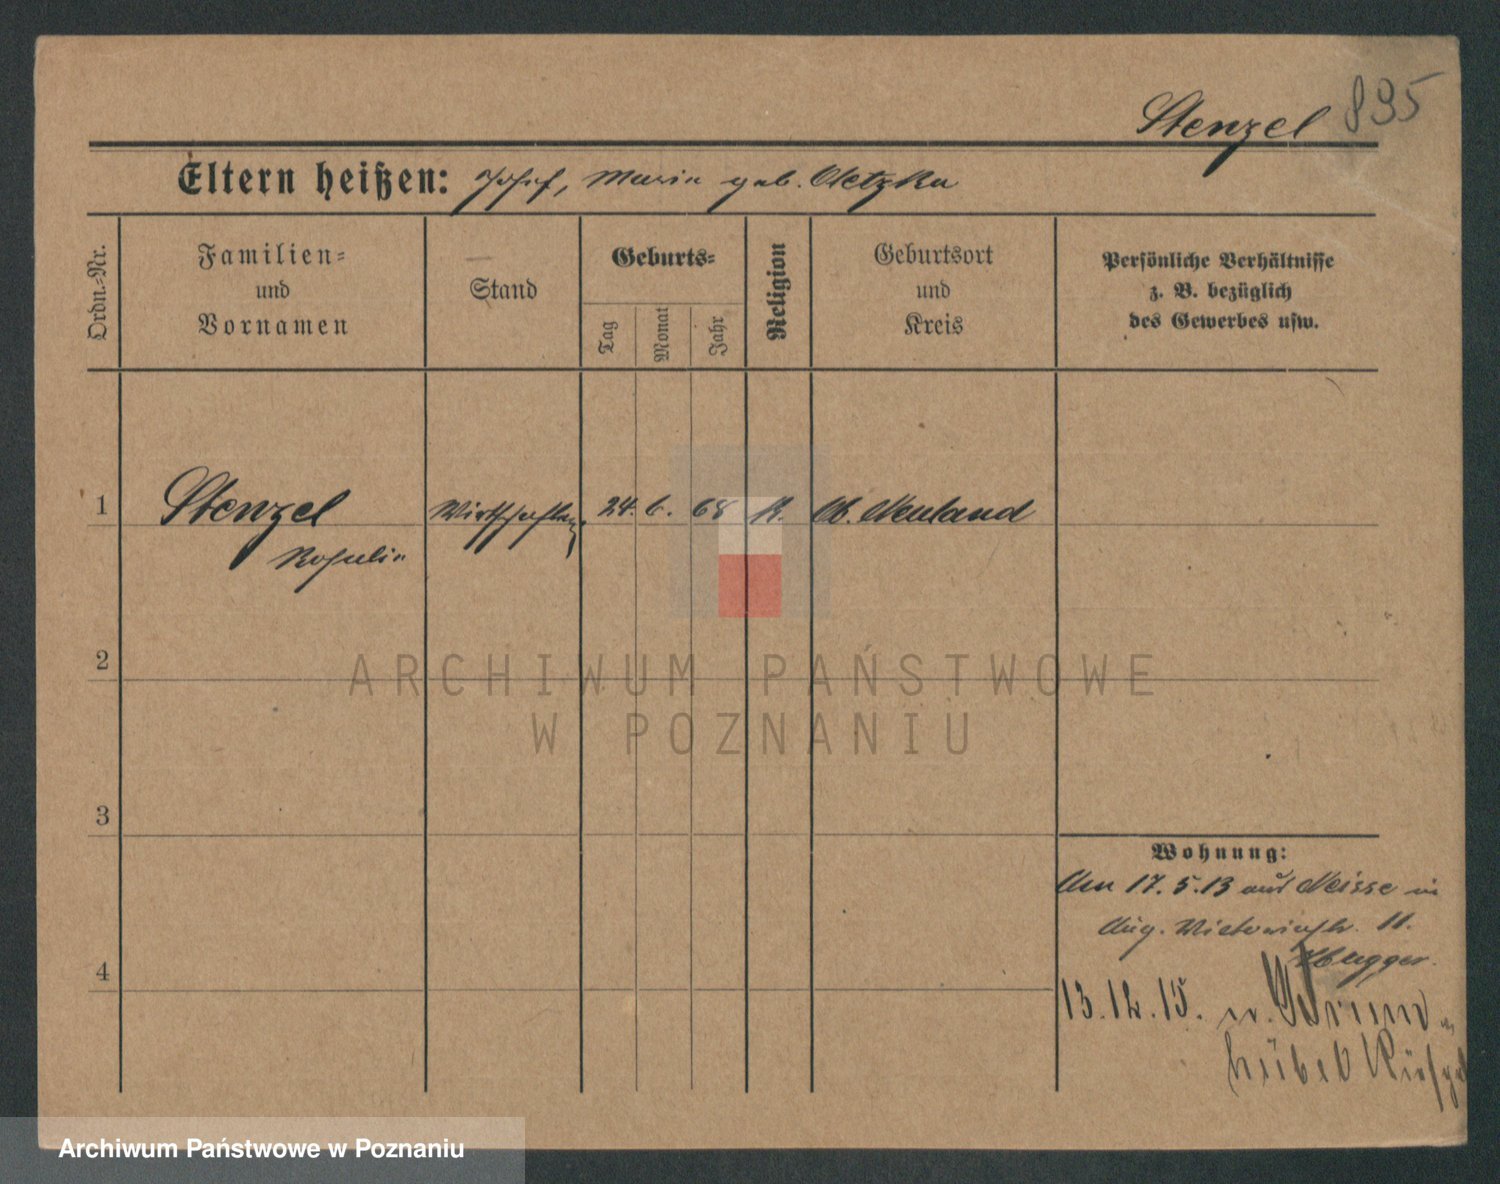 Stenzel 895
Eltern heißen: Josef, Maria geb. Netzka
Ordn.-Nr.
Familien-
und
Vornamen
Stand
Geburts-
Tag
Monat
Jahr
Religion
Geburtsort
und
Kreis
Persönliche Verhältnisse
z. B. bezüglich
des Gewerbes usw.
1 Stenzel Wirtschafterin 24. 6. 68 K. Ob. Neuland
Rosalia
2
3
4
Wohnung:
Am 17.5.13 aus Neisse in
Aug. Victoriastr. 11.
13.12.15. n.
ARCHIWUM PAŃSTWOWE
W POZNANIU
Archiwum Państwowe w Poznaniu